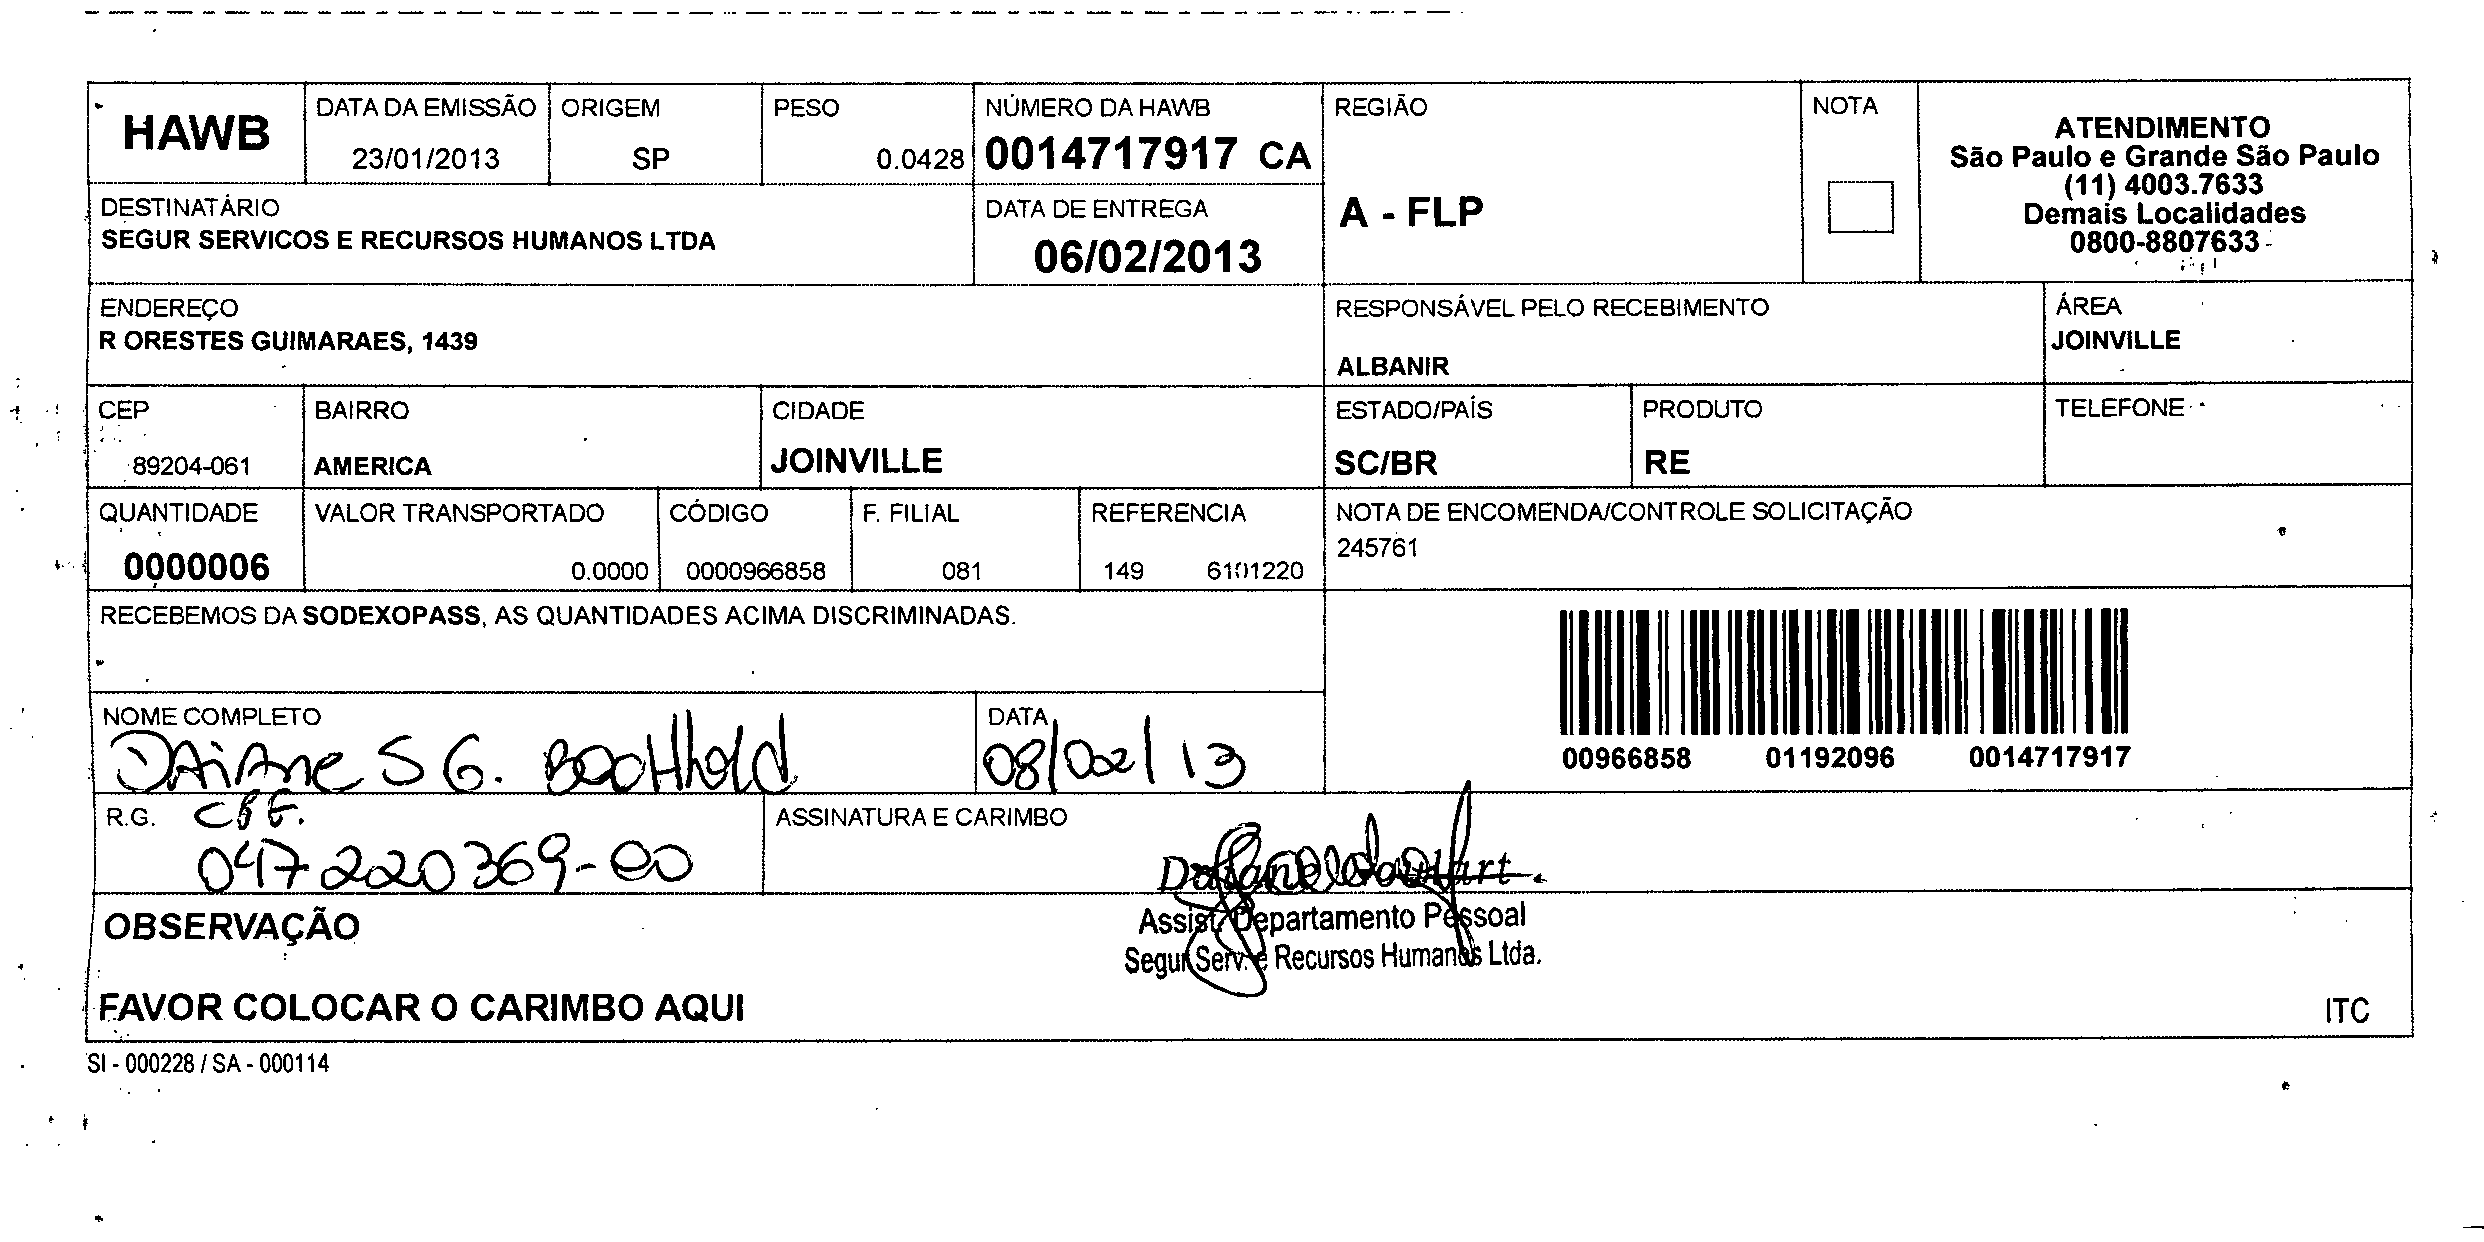 HAWB
DATA DA EMISSÃO
23/01/2013
ORIGEM
SP
PESO
0.0428
NÚMERO DA HAWB
0014717917 CA
REGIÃO
A - FLP
NOTA
ATENDIMENTO
São Paulo e Grande São Paulo
(11) 4003.7633
Demais Localidades
0800-8807633
DESTINATÁRIO
SEGUR SERVICOS E RECURSOS HUMANOS LTDA
DATA DE ENTREGA
06/02/2013
ENDEREÇO
R ORESTES GUIMARAES, 1439
RESPONSÁVEL PELO RECEBIMENTO
ALBANIR
ÁREA
JOINVILLE
CEP
89204-061
BAIRRO
AMERICA
CIDADE
JOINVILLE
ESTADO/PAÍS
SC/BR
PRODUTO
RE
TELEFONE
QUANTIDADE
0000006
VALOR TRANSPORTADO
0.0000
CÓDIGO
0000966858
F. FILIAL
081
REFERENCIA
149 6101220
NOTA DE ENCOMENDA/CONTROLE SOLICITAÇÃO
245761
RECEBEMOS DA SODEXOPASS, AS QUANTIDADES ACIMA DISCRIMINADAS.
00966858 01192096 0014717917
NOME COMPLETO
DAiANe S G.
DATA
08/02/13
R.G.
CPF.
047220369-00
ASSINATURA E CARIMBO
Assist. Departamento Pessoal
Segur Serv. e Recursos Humanos Ltda.
OBSERVAÇÃO
FAVOR COLOCAR O CARIMBO AQUI
ITC
SI - 000228 / SA - 000114